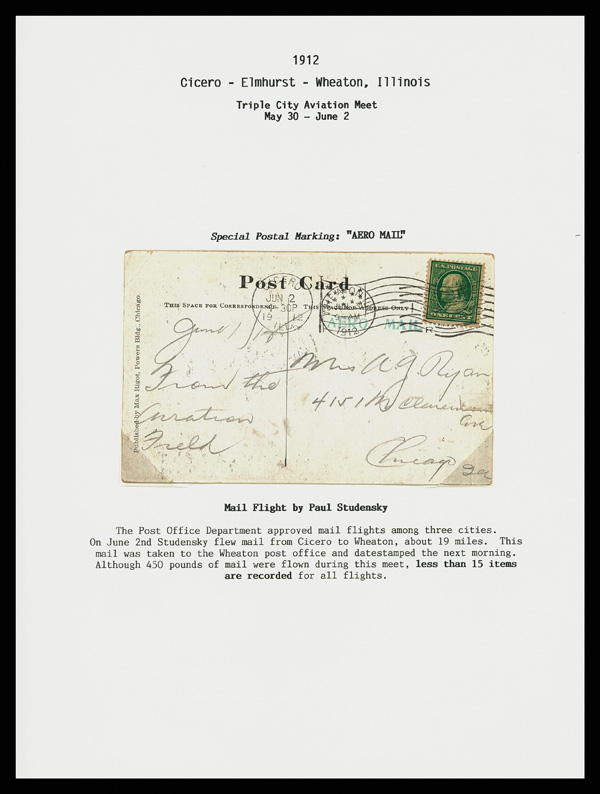 1912
Cicero - Elmhurst - Wheaton, Illinois
Triple City Aviation Meet
May 30 - June 2
Special Postal Marking: "AERO MAIL"
Post Card
THIS SPACE FOR CORRESPONDENCE
THIS SPACE FOR ADDRESS ONLY
U.S. POSTAGE
JUN 2
30P
19 12
1912
AERO MAIL
Published by Max Rigot, Powers Bldg., Chicago.
June 1/12
From the
Aviation
Field
Mrs A G Ryan
4151
Ave
Chicago
Mail Flight by Paul Studensky
The Post Office Department approved mail flights among three cities.
On June 2nd Studensky flew mail from Cicero to Wheaton, about 19 miles. This
mail was taken to the Wheaton post office and datestamped the next morning.
Although 450 pounds of mail were flown during this meet, less than 15 items
are recorded for all flights.